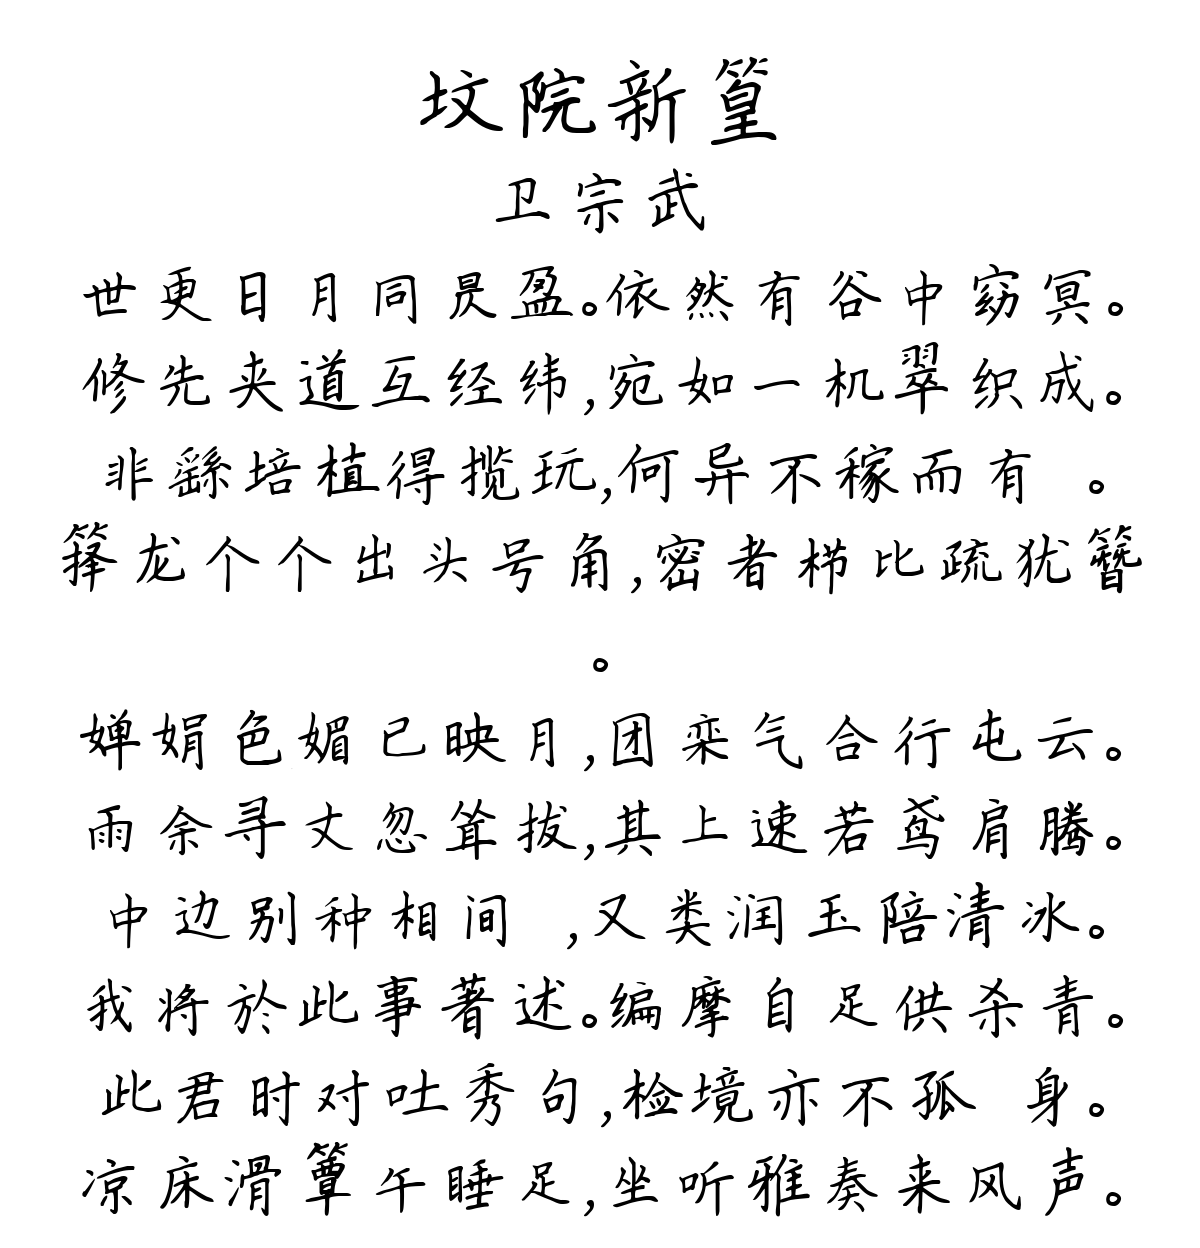 坟院新篁
卫宗武
世更日月同昃盈。依然有谷中窈冥。
修先夹道互经纬,宛如一机翠织成。
非繇培植得揽玩,何异不稼而有 。
箨龙个个出头号角,密者栉比疏犹簪
。
婵娟色媚已映月,团栾气合行屯云。
雨余寻丈忽耸拔,其上速若鸢肩腾。
中边别种相间 ,又类润玉陪清冰。
我将於此事著述。编摩自足供杀青。
此君时对吐秀句,检境亦不孤 身。
凉床滑簟午睡足,坐听雅奏来风声。